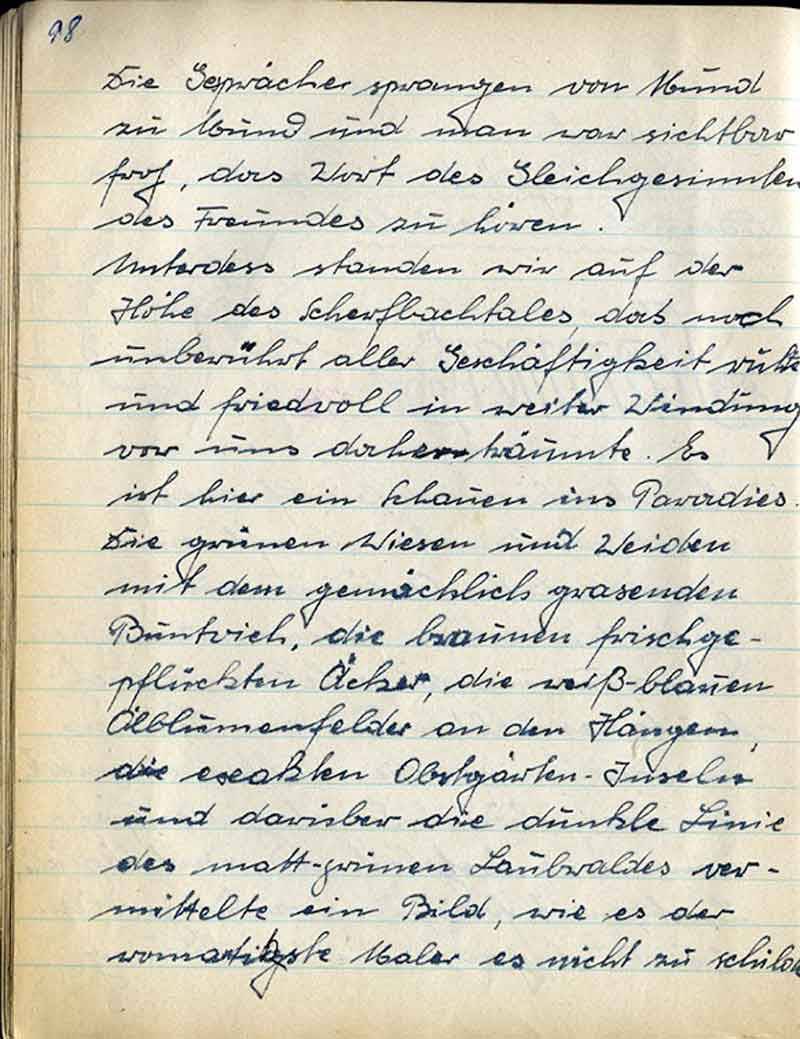 98
Die Gespräche sprangen von Mund
zu Mund und man war sichtbar
froh, das Wort des Gleichgesinnten
des Freundes zu hören.
Unterdess standen wir auf der
Höhe des Scherfbachtales, das noch
unberührt aller Geschäftigkeit ruht
und friedvoll in weiter Windung
vor uns daher träumte. Es
ist hier ein Schauen ins Paradies.
Die grünen Wiesen und Weiden
mit dem gemächlich grasenden
Buntvieh, die braunen frischge-
pflückten Äcker, die weiß-blauen
Ölblumenfelder an den Hängen,
die exakten Obstgärten-Inseln
und darüber die dunkle Linie
des matt-grünen Laubwaldes ver-
mittelte ein Bild, wie es der
romantigste Maler es nicht zu schild